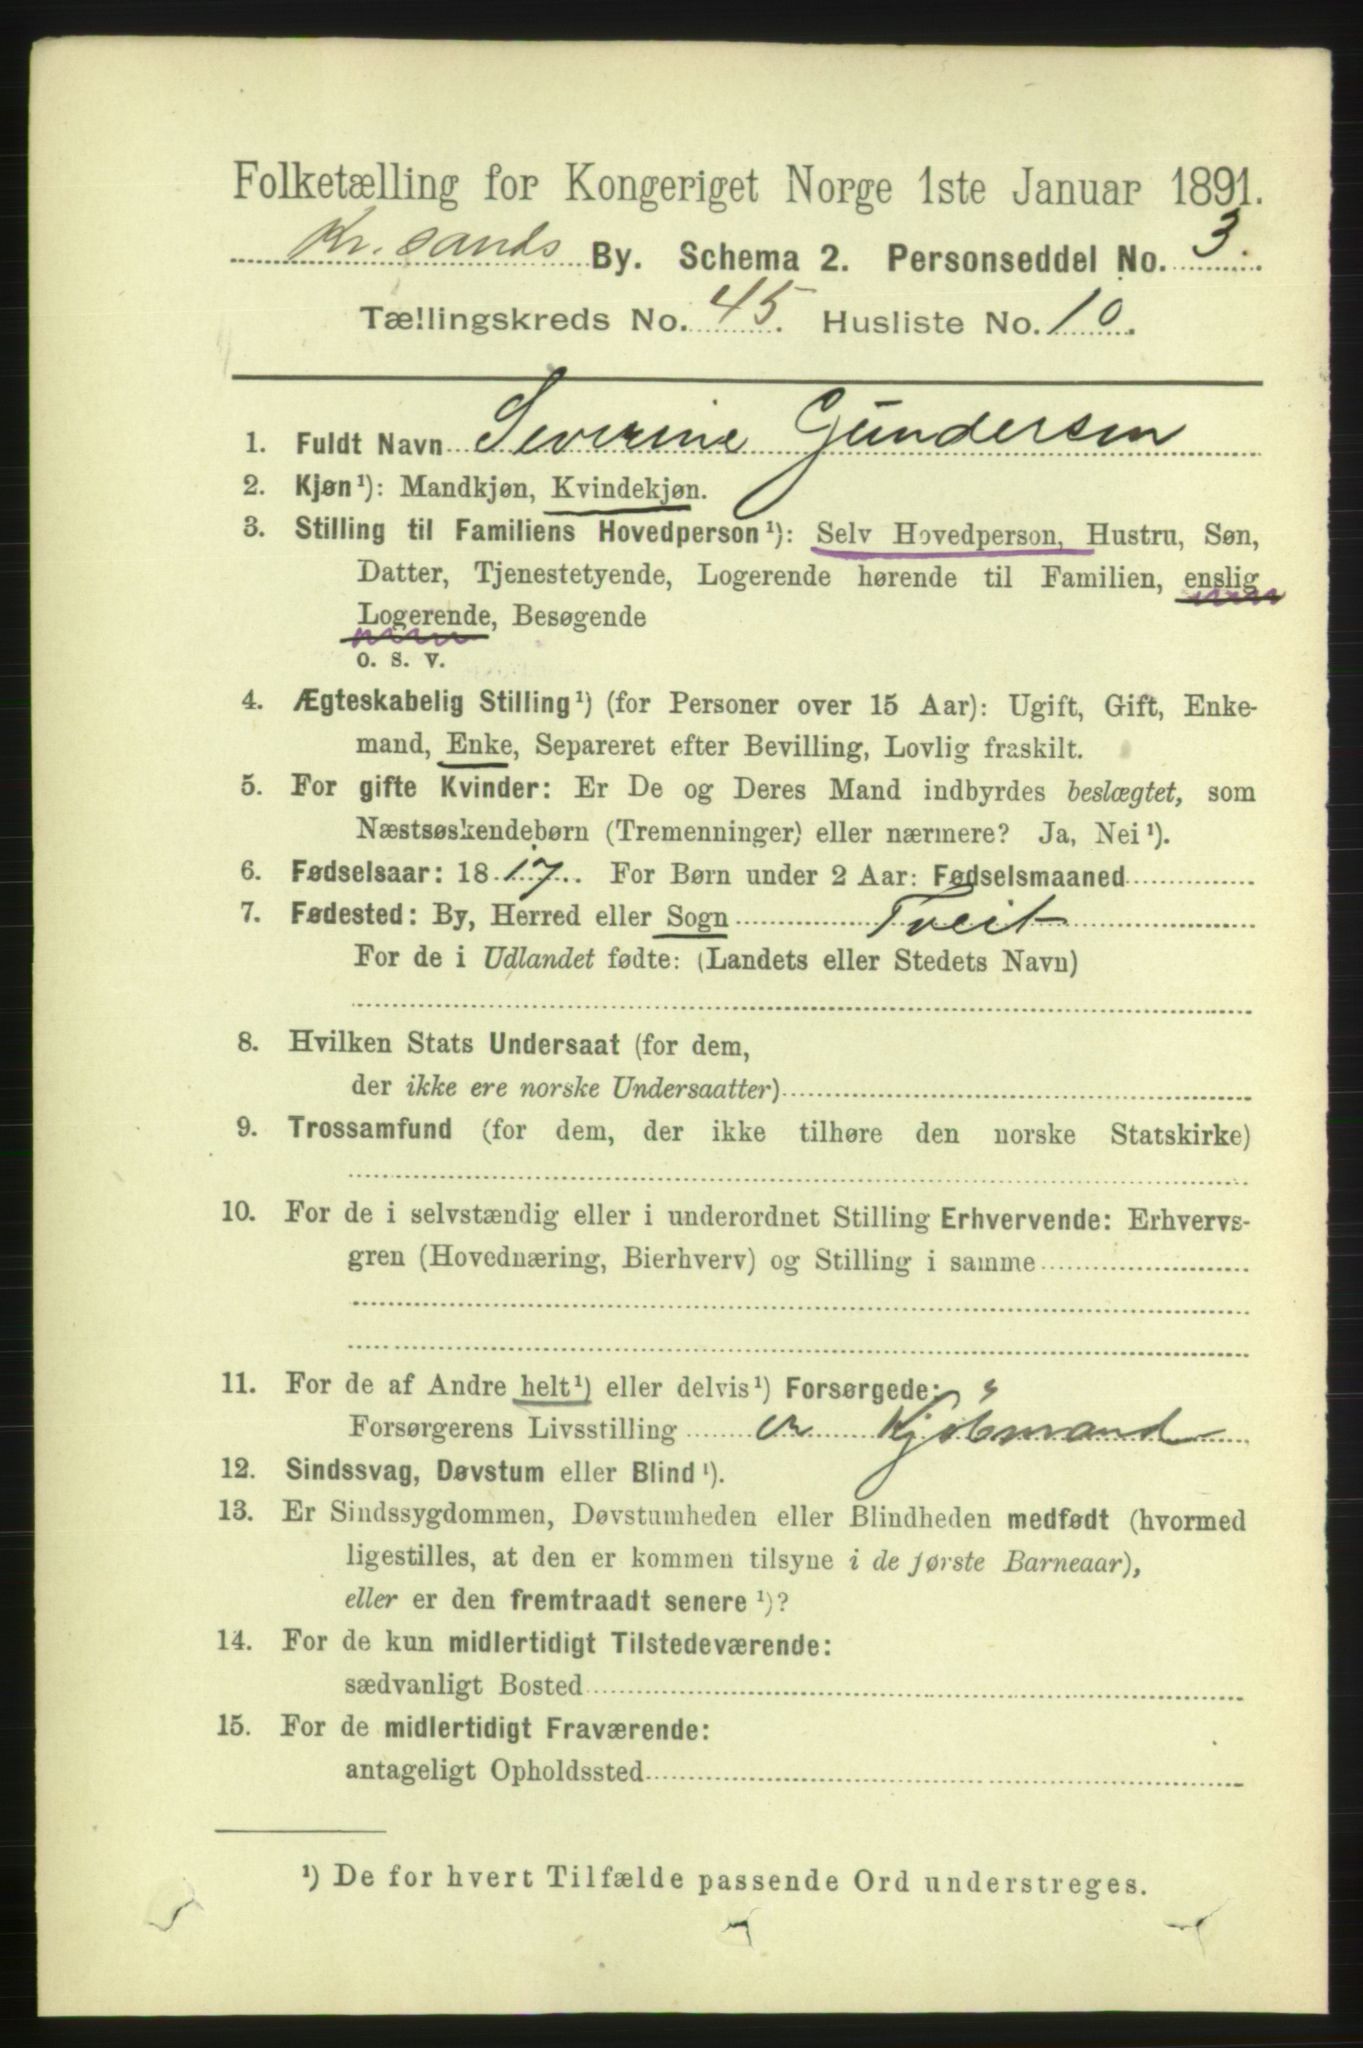 Folketælling for Kongeriget Norge 1ste Januar 1891.
Kr. sands By. Schema 2. Personseddel No. 3.
Tællingskreds No. 45. Husliste No. 10.
1. Fuldt Navn Severine Gundersen
2. Kjøn¹): Mandkjøn, Kvindekjøn.
3. Stilling til Familiens Hovedperson¹): Selv Hovedperson, Hustru, Søn,
Datter, Tjenestetyende, Logerende hørende til Familien, enslig
Logerende, Besøgende
o. s. v.
4. Ægteskabelig Stilling¹) (for Personer over 15 Aar): Ugift, Gift, Enke-
mand, Enke, Separeret efter Bevilling, Lovlig fraskilt.
5. For gifte Kvinder: Er De og Deres Mand indbyrdes beslægtet, som
Næstsøskendebørn (Tremenninger) eller nærmere? Ja, Nei¹).
6. Fødselsaar: 1817. For Børn under 2 Aar: Fødselsmaaned
7. Fødested: By, Herred eller Sogn Tveit
For de i Udlandet fødte: (Landets eller Stedets Navn)
8. Hvilken Stats Undersaat (for dem,
der ikke ere norske Undersaatter)
9. Trossamfund (for dem, der ikke tilhøre den norske Statskirke)
10. For de i selvstændig eller i underordnet Stilling Erhvervende: Erhvervs-
gren (Hovednæring, Bierhverv) og Stilling i samme
11. For de af Andre helt¹) eller delvis¹) Forsørgede:
Forsørgerens Livsstilling er Kjøbmand
12. Sindssvag, Døvstum eller Blind¹).
13. Er Sindssygdommen, Døvstumheden eller Blindheden medfødt (hvormed
ligestilles, at den er kommen tilsyne i de første Barneaar),
eller er den fremtraadt senere¹)?
14. For de kun midlertidigt Tilstedeværende:
sædvanligt Bosted
15. For de midlertidigt Fraværende:
antageligt Opholdssted
¹) De for hvert Tilfælde passende Ord understreges.